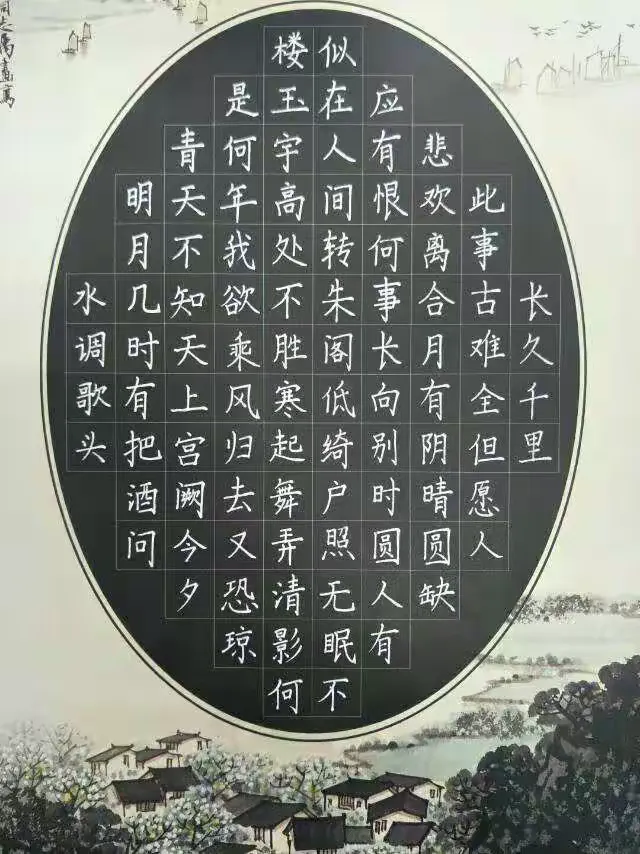 水调歌头
明月几时有把酒问
青天不知天上宫阙今夕
是何年我欲乘风归去又恐琼
楼玉宇高处不胜寒起舞弄清影何
似在人间转朱阁低绮户照无眠不
应有恨何事长向别时圆人有
悲欢离合月有阴晴圆缺
此事古难全但愿人
长久千里